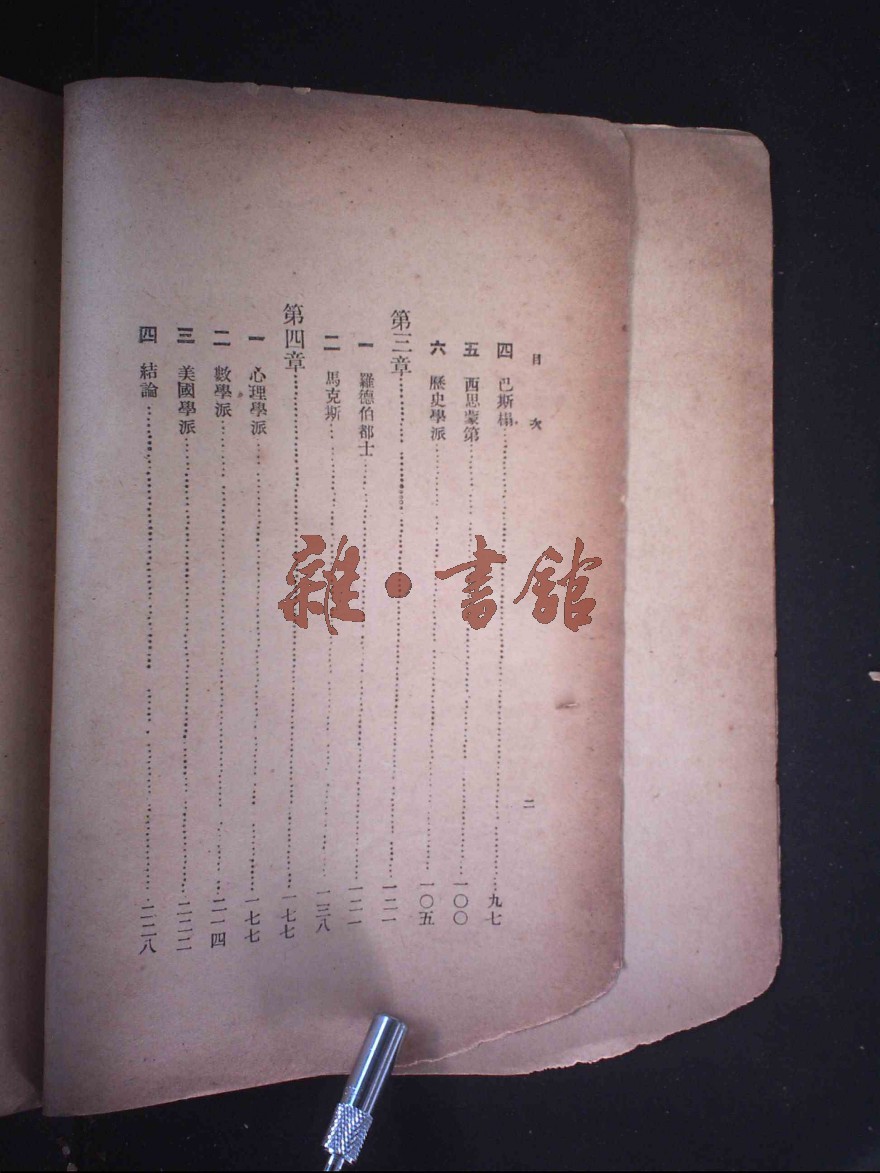 目次
四 巴斯楊……九七
五 西思蒙第……一〇〇
六 歷史學派……一〇五
第三章……一二一
一 羅德伯都士……一二一
二 馬克斯……一三八
第四章……一七七
一 心理學派……一七七
二 數學派……二一四
三 美國學派……二二二
四 結論……二二八
二
雜·書館